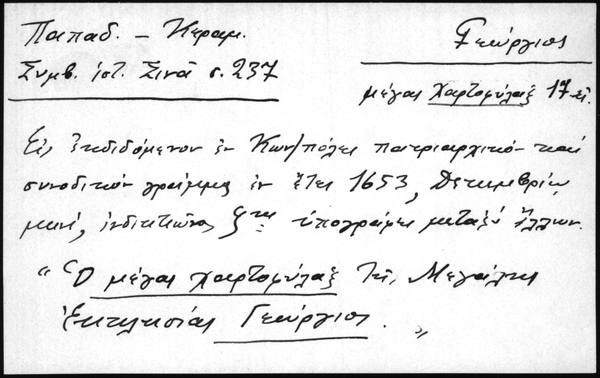 Παπαδ. – Κεραμ.
Συμβ. ἱστ. Σινᾶ σ. 237
Γεώργιος
μέγας χαρτοφύλαξ 17 αἰ.
Εἰς ἐκδιδόμενον ἐν Κων/πόλει πατριαρχικὸν καὶ
συνοδικὸν γράμμα ἐν ἔτει 1653, Δεκεμβρίῳ
μηνί, ἰνδικτιῶνος ζης ὑπογράφει μεταξὺ ἄλλων.
" Ὁ μέγας χαρτοφύλαξ τῆς Μεγάλης
Ἐκκλησίας Γεώργιος. "